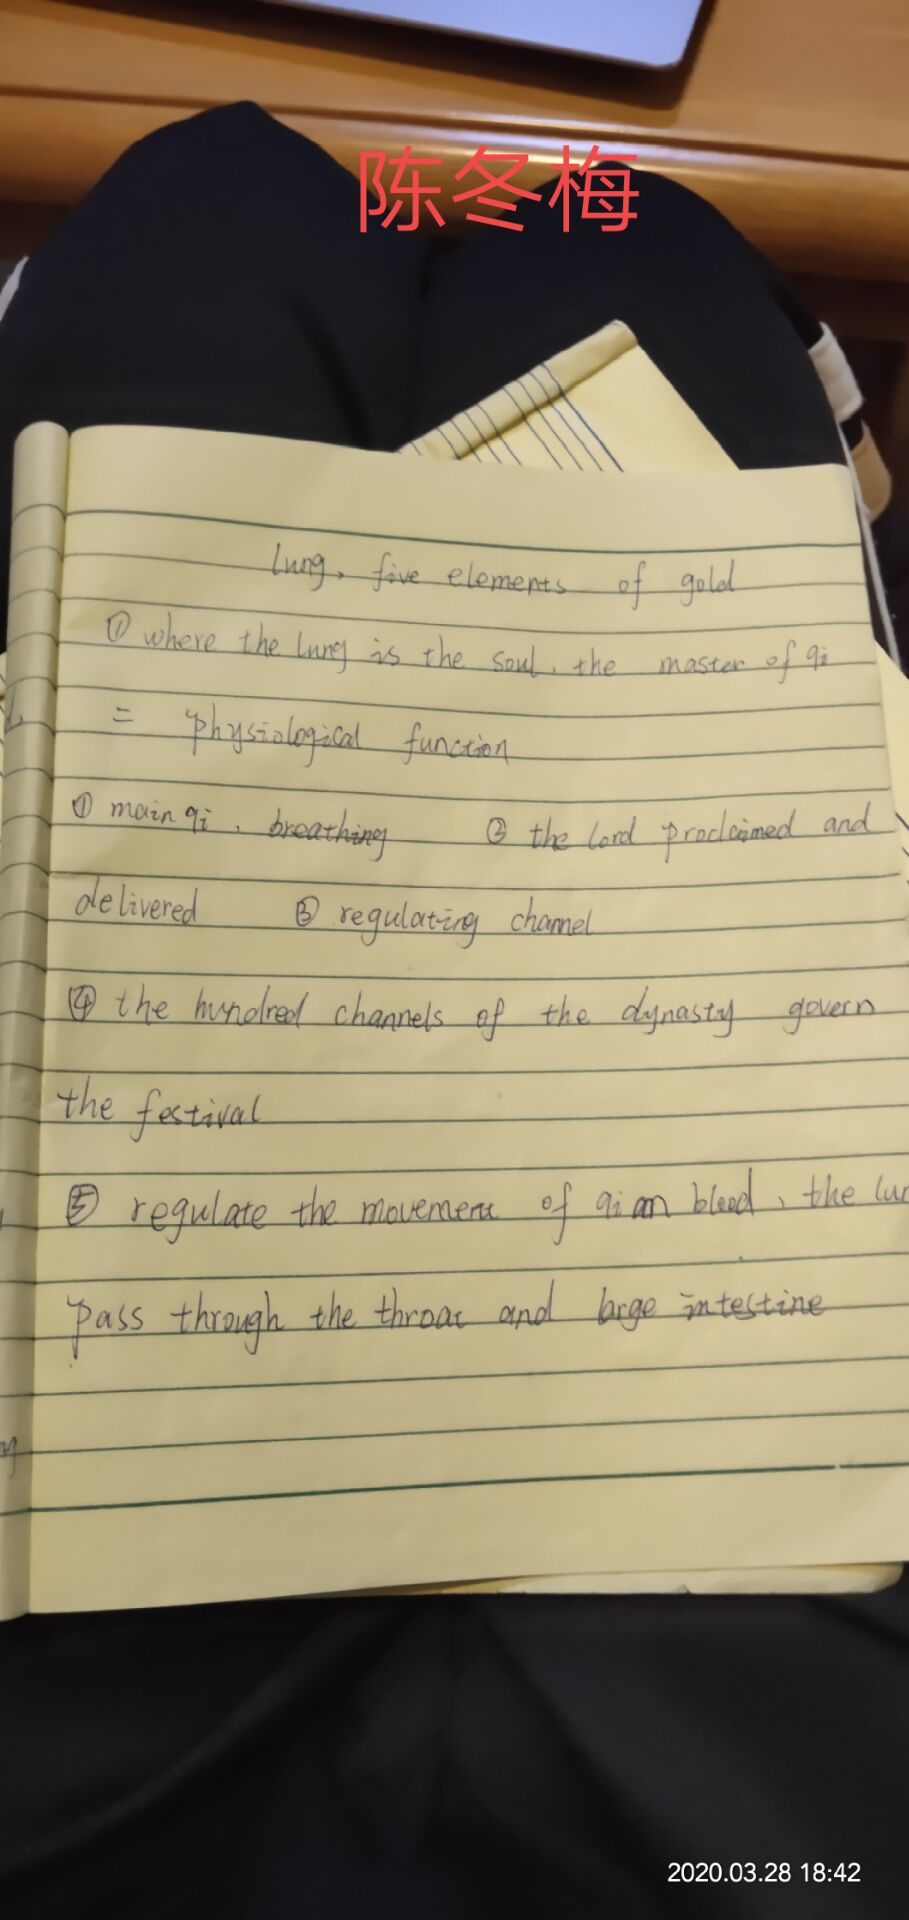 陈冬梅
lung, five elements of gold
① where the lung is the soul, the master of qi
= physiological function
① main qi, breathing ② the lord proclaimed and
delivered ③ regulating channel
④ the hundred channels of the dynasty govern
the festival
⑤ regulate the movement of qi an blood, the
pass through the throat and large intestine
2020.03.28 18:42